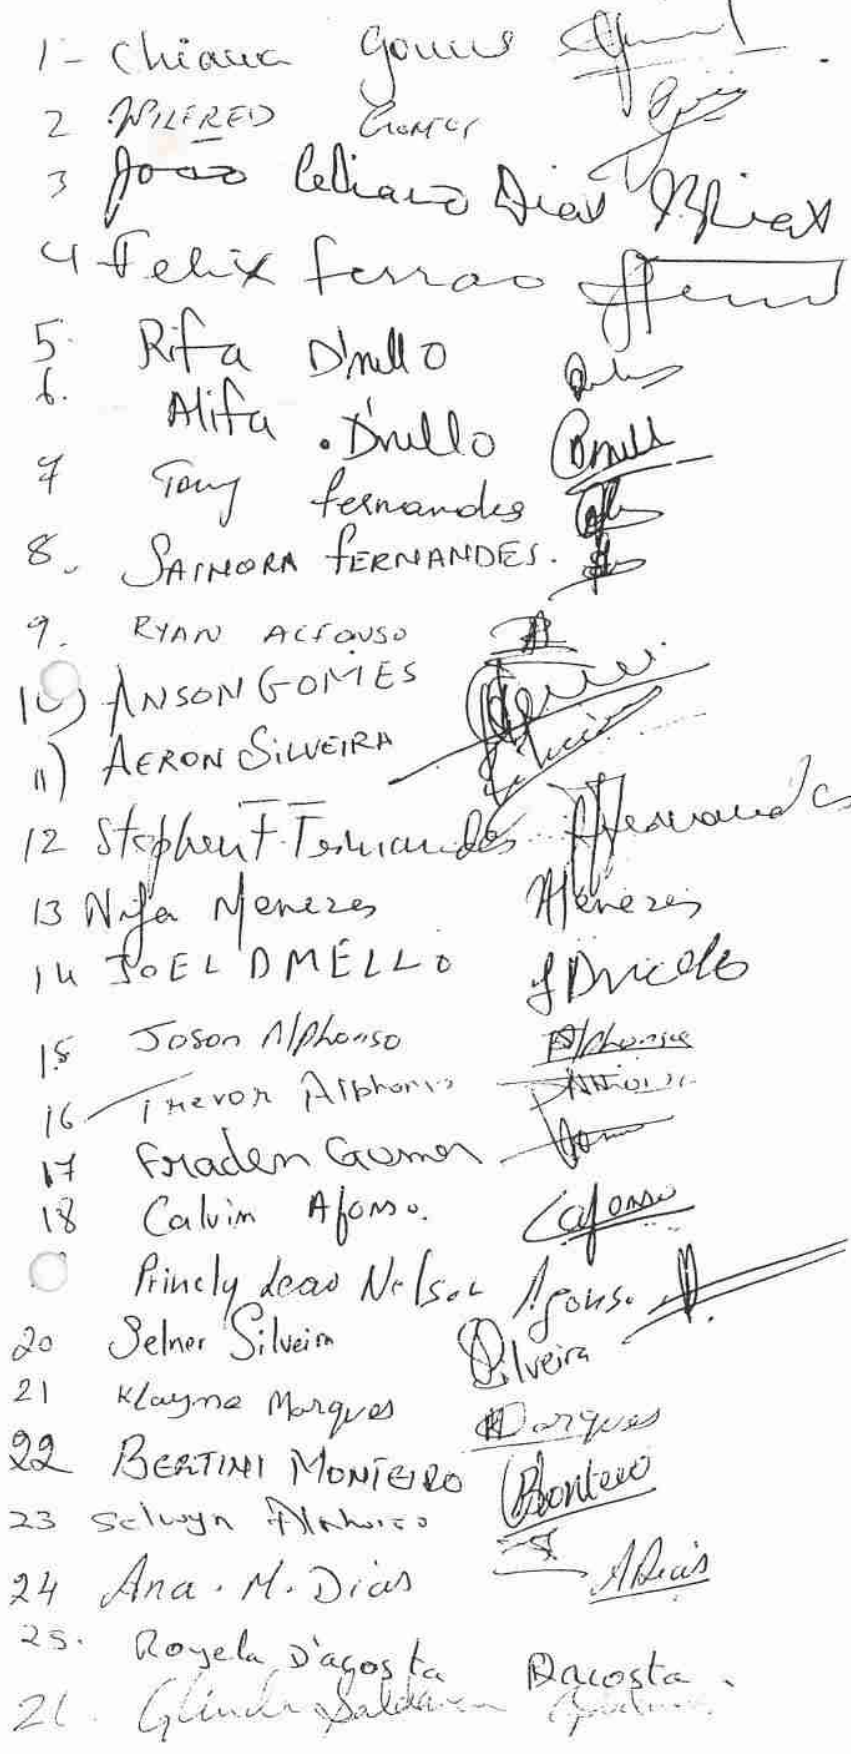 1- Chiana Gomes
2 WILFRED Gomes
3 João Celiano Dias JBDias
4 Felix Ferrao
5. Rifa D'mello
6. Alifa . D'mello
7 Tony fernandes
8. SAINORA FERNANDES.
9. RYAN ALFONSO
10) ANSON GOMES
11) AERON SILVEIRA
12 Stephen F. Fernandes Fernandes
13 Nifa Menezes Menezes
14 JOEL DMELLO JDmello
15 Joson Alphonso Alphonso
16 Trevor Alphonso
17 Fraden Gomes
18 Calvin Afonso. Cafonso
Princly Leao Nelson Afonso
20 Selner Silveira Silveira
21 Klayne Marques Marques
22 BERTINI MONTEIRO Monteiro
23 Selwyn
24 Ana. M. Dias ADias
25. Royela D'acosta Dacosta.
Saldanha